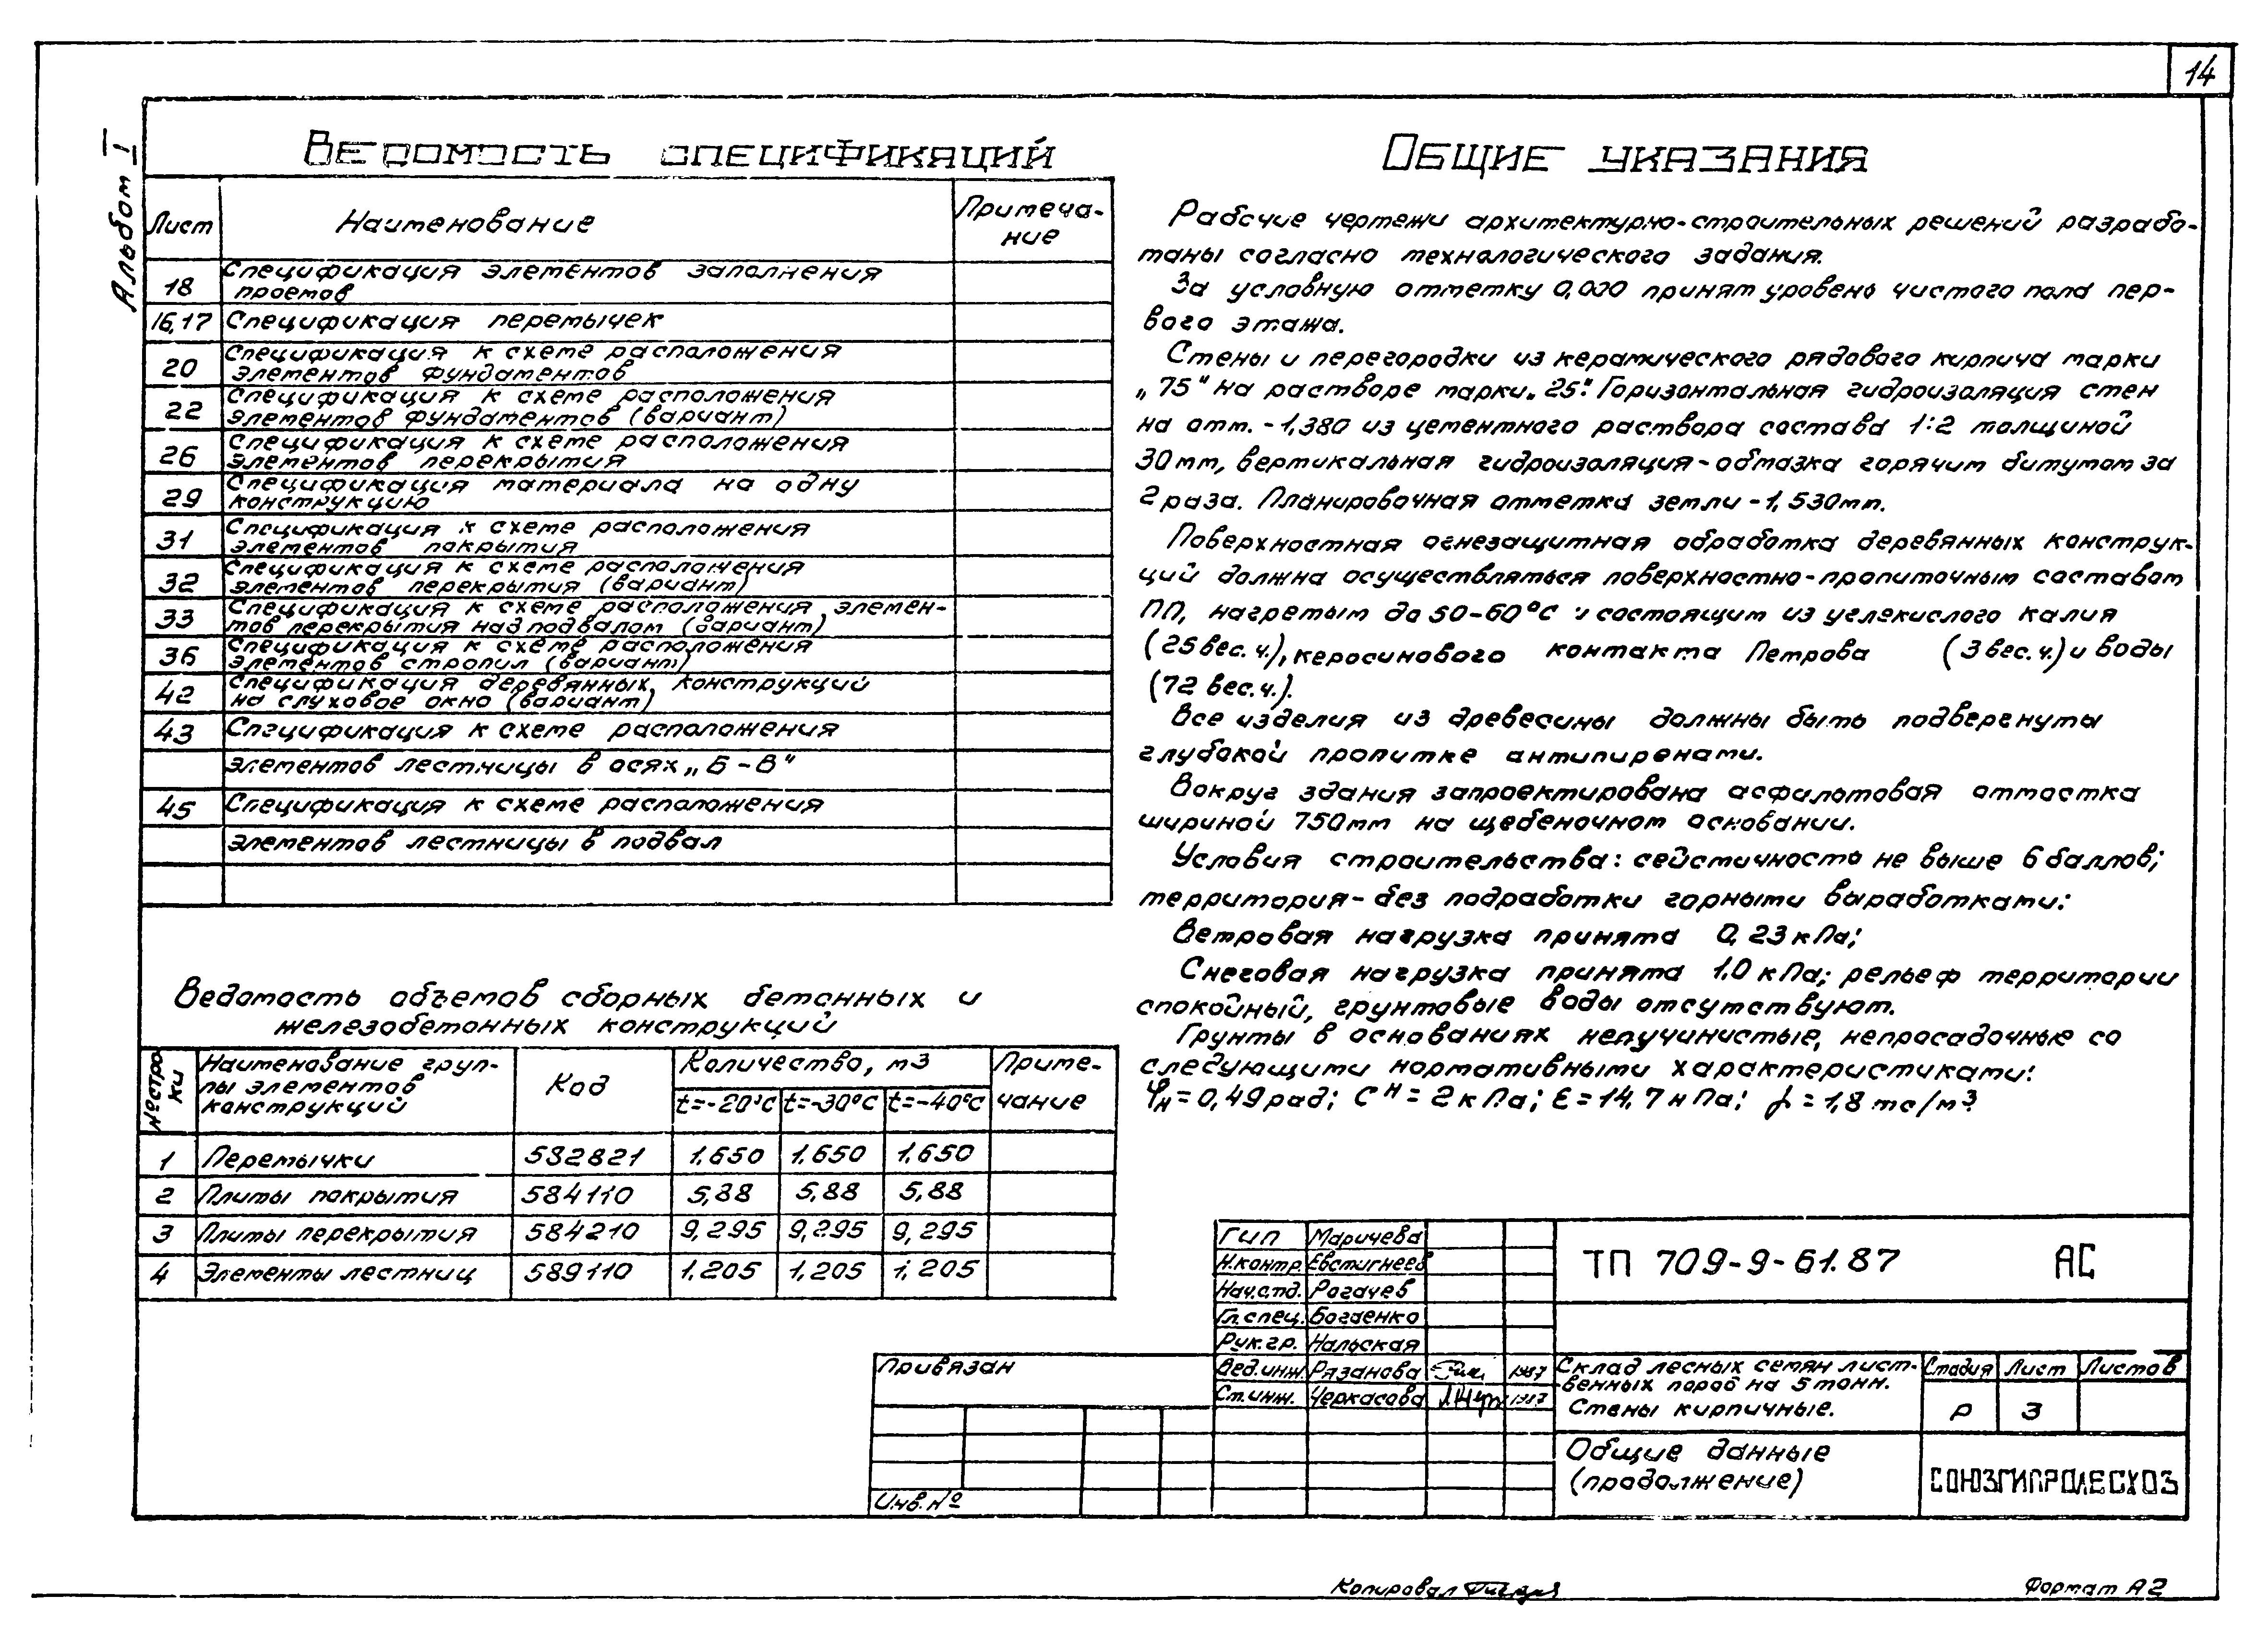 14
Альбом I
Ведомость спецификаций
Лист Наименование Примеча-
ние
18 Спецификация элементов заполнения
проемов
16,17 Спецификация перемычек
20 Спецификация к схеме расположения
элементов фундаментов
22 Спецификация к схеме расположения
элементов фундаментов (вариант)
26 Спецификация к схеме расположения
элементов перекрытия
29 Спецификация материала на одну
конструкцию
31 Спецификация к схеме расположения
элементов покрытия
32 Спецификация к схеме расположения
элементов перекрытия (вариант)
33 Спецификация к схеме расположения элемен-
тов перекрытия над подвалом (вариант)
36 Спецификация к схеме расположения
элементов стропил (вариант)
42 Спецификация деревянных конструкций
на слуховое окно (вариант)
43 Спецификация к схеме расположения
элементов лестницы в осях „Б-В"
45 Спецификация к схеме расположения
элементов лестницы в подвал
Ведомость объемов сборных бетонных и
железобетонных конструкций
№ стро
ки
Наименование груп-
пы элементов
конструкций
Код
Количество, м3
t=-20°С t=-30°С t=-40°С
Приме-
чание
1 Перемычки 582821 1,650 1,650 1,650
2 Плиты покрытия 584110 5,88 5,88 5,88
3 Плиты перекрытия 584210 9,295 9,295 9,295
4 Элементы лестниц 589110 1,205 1,205 1,205
Общие указания
Рабочие чертежи архитектурно-строительных решений разрабо-
таны согласно технологического задания.
За условную отметку 0,000 принят уровень чистого пола пер-
вого этажа.
Стены и перегородки из керамического рядового кирпича марки
„75" на растворе марки „25". Горизонтальная гидроизоляция стен
на отм. -1,380 из цементного раствора состава 1:2 толщиной
30мм, вертикальная гидроизоляция-обмазка горячим битумом за
2 раза. Планировочная отметка земли -1,530мп.
Поверхностная огнезащитная обработка деревянных конструк-
ций должна осуществляться поверхностно-пропиточным составом
ПП, нагретым до 50-60°С и состоящим из углекислого калия
(25 вес.ч.), керосинового контакта Петрова (3 вес.ч.) и воды
(72 вес.ч.).
Все изделия из древесины должны быть подвергнуты
глубокой пропитке антипиренами.
Вокруг здания запроектирована асфальтовая отмостка
шириной 750мм на щебеночном основании.
Условия строительства: сейсмичность не выше 6 баллов;
территория-без подработки горными выработками:
Ветровая нагрузка принята 0,23 кПа;
Снеговая нагрузка принята 1,0 кПа; рельеф территории
спокойный, грунтовые воды отсутствуют.
Грунты в основаниях непучинистые, непросадочные со
следующими нормативными характеристиками:
φн=0,49 рад; Сн=2 кПа; Е=14,7 нПа; γ=1,8 тс/м3
ГИП Маричева
Н.контр. Евстигнеев
Нач.отд. Рогачев
Гл.спец. Богаенко
Рук.гр. Нальская
Вед.инж. Рязанова 1987
Ст.инж. Черкасова 1987
ТП 709-9-61.87 АС
Склад лесных семян лист-
венных пород на 5 тонн.
Стены кирпичные.
Стадия Лист Листов
Р 3
Общие данные
(продолжение)
СОЮЗГИПРОЛЕСХОЗ
Привязан
Инв. №
Копировал
Формат А2